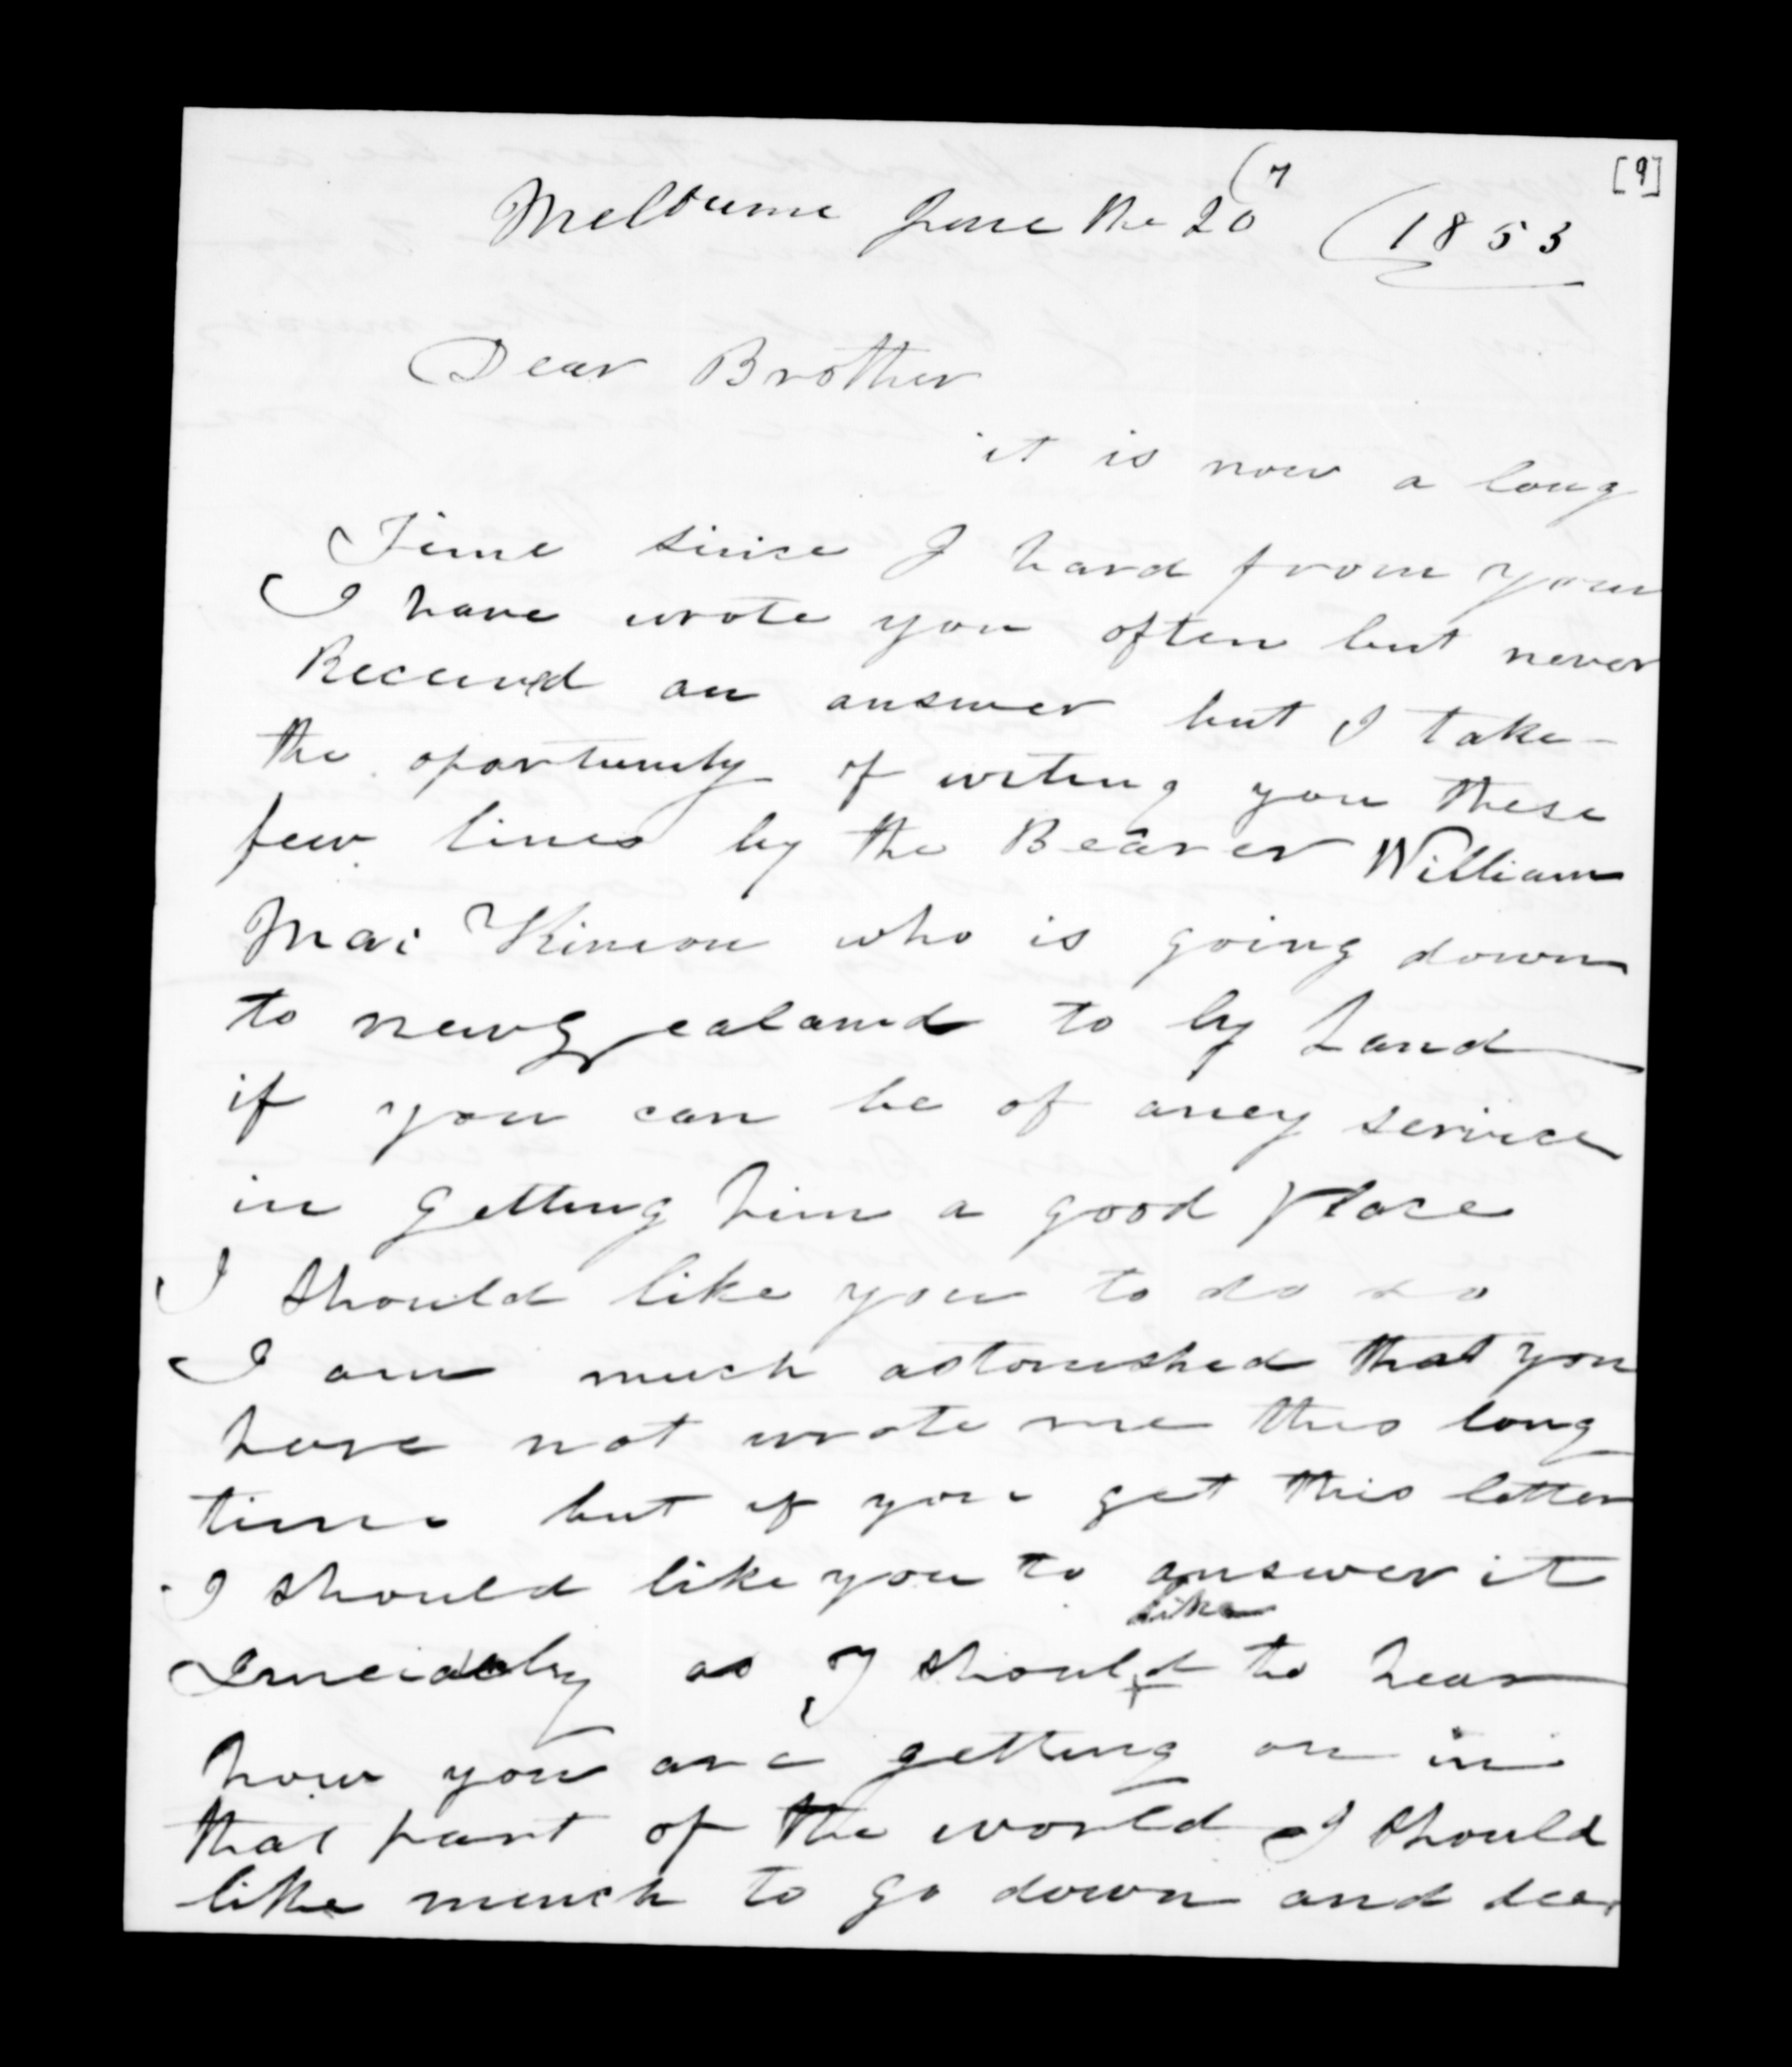 [9]
Melburne June the 20 1853
Dear Brother
it is now a long
Time since I hard from you
I have wrote you often but never
Received an answer but I take
the oportunity of writing you these
few lines by the Bearer William
Mac Kinnon who is going down
to newzealand to by Land
if you can be of aney service
in getting him a good Place
I should like you to do so
I am much astonished that you
have not wrote me this long
time but if you get this letter
I should like you to answer it
like
as I should to hear
how you are getting on in
that part of the world I should
like much to go down and see